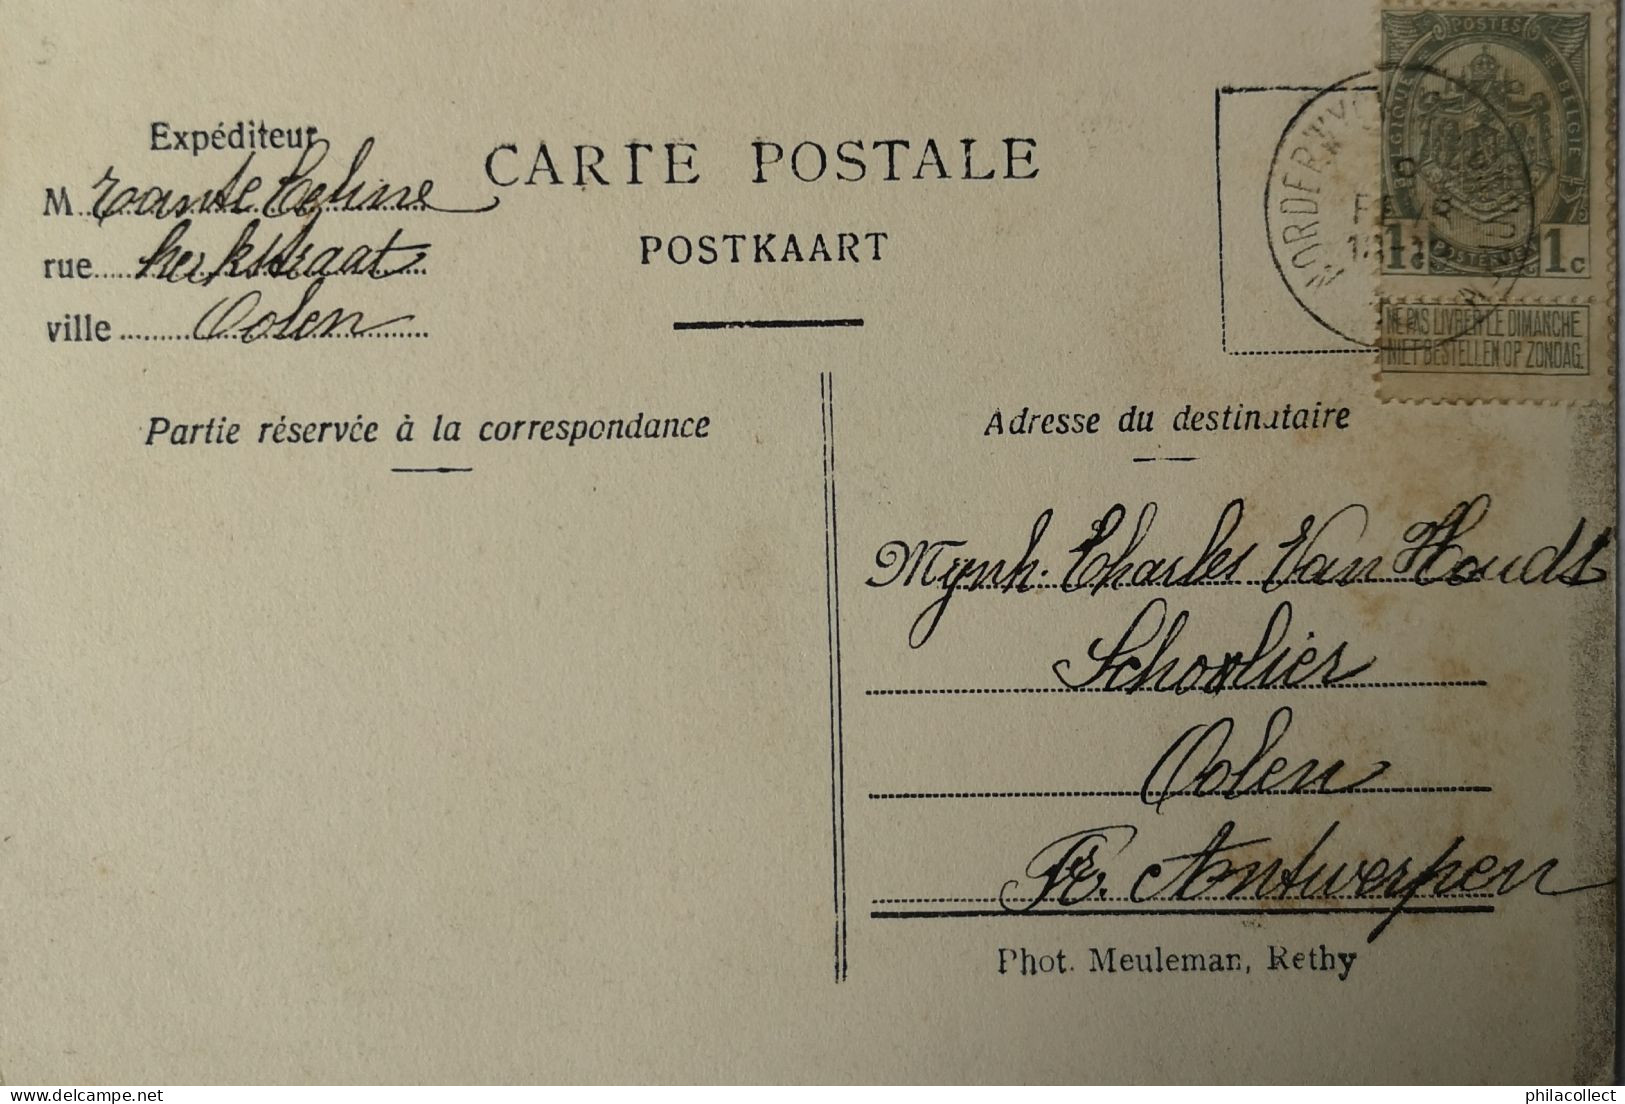 Expéditeur
M Tante Celine
rue kerkstraat
ville Oolen
CARTE POSTALE
POSTKAART
POSTES
BELGIQUE BELGIE
1c POSTERIJEN 1c
NE PAS LIVRER LE DIMANCHE
NIET BESTELLEN OP ZONDAG.
NORDERWYCK
Partie réservée à la correspondance
Adresse du destinataire
Mynh. Charles Van Houdt
Schoolier
Oolen
Pr. Antwerpen
Phot. Meuleman, Rethy
philacollect
philacollect.com